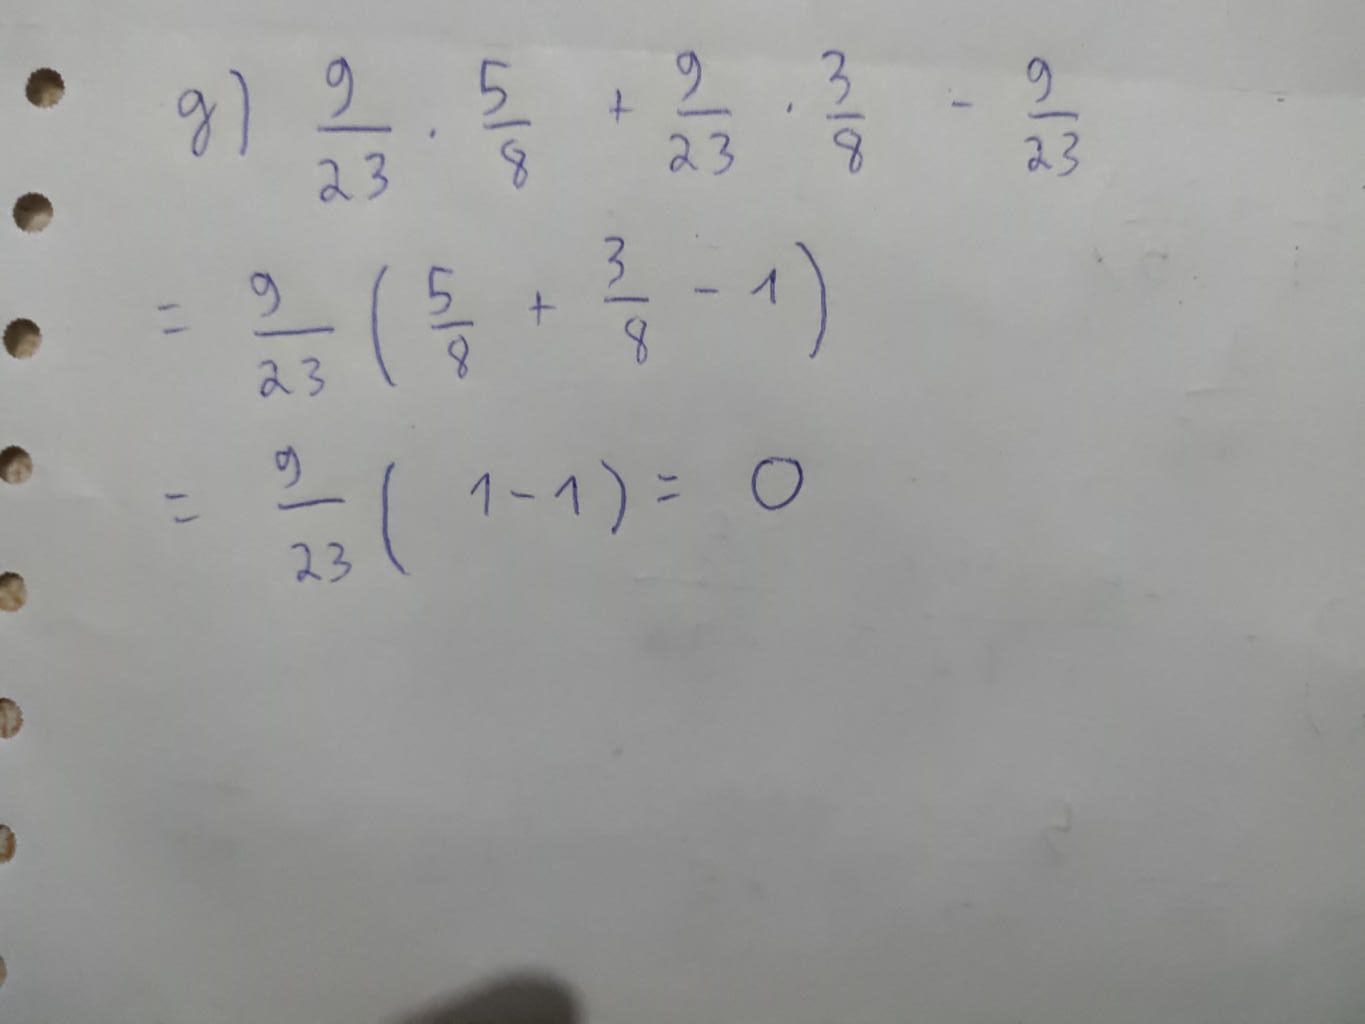 g) 9/23 . 5/8 + 9/23 . 3/8 - 9/23
= 9/23 ( 5/8 + 3/8 - 1 )
= 9/23 ( 1 - 1 ) = 0